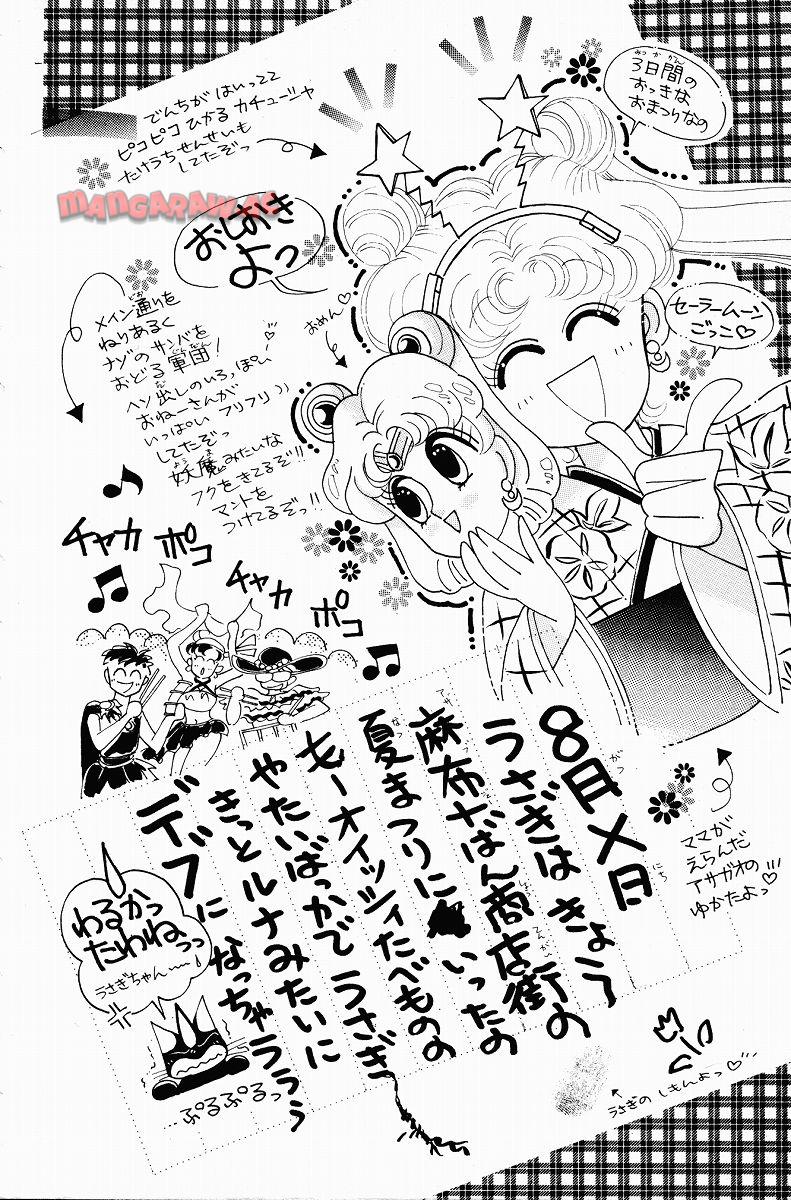 3日間の
おっきな
おまつりなの
でんちが はいってて
ピコピコ ひかる カチューシャ
たけうちせんせいも
してたぞっ
MANGARAW.AC
おしおき
よっ
セーラームーン
ごっこ♡
おめん♡
メイン通りを
ねりあるく
ナゾのサンバを
おどる軍団!
ヘソ出しのいろっぽい
おねーさんが
いっぱい フリフリ
してたぞっ
妖魔みたいな
フクをきてるぞ!!
マントを
つけてるぞっ!!
チャカ
ポコ
チャカ
ポコ
8月×日
うさぎは きょう
麻布十ばん商店街の
夏まつりに いったの
もーオイッシィたべものの
やたいばっかで うさぎ
きっとルナみたいに
デブになっちゃうぅぅ
ママが
えらんだ
アサガオの
ゆかたよっ♡
わるかっ
たわねっっ
うさぎちゃん
ぷるぷるっ
うさぎの しもんよっ♡